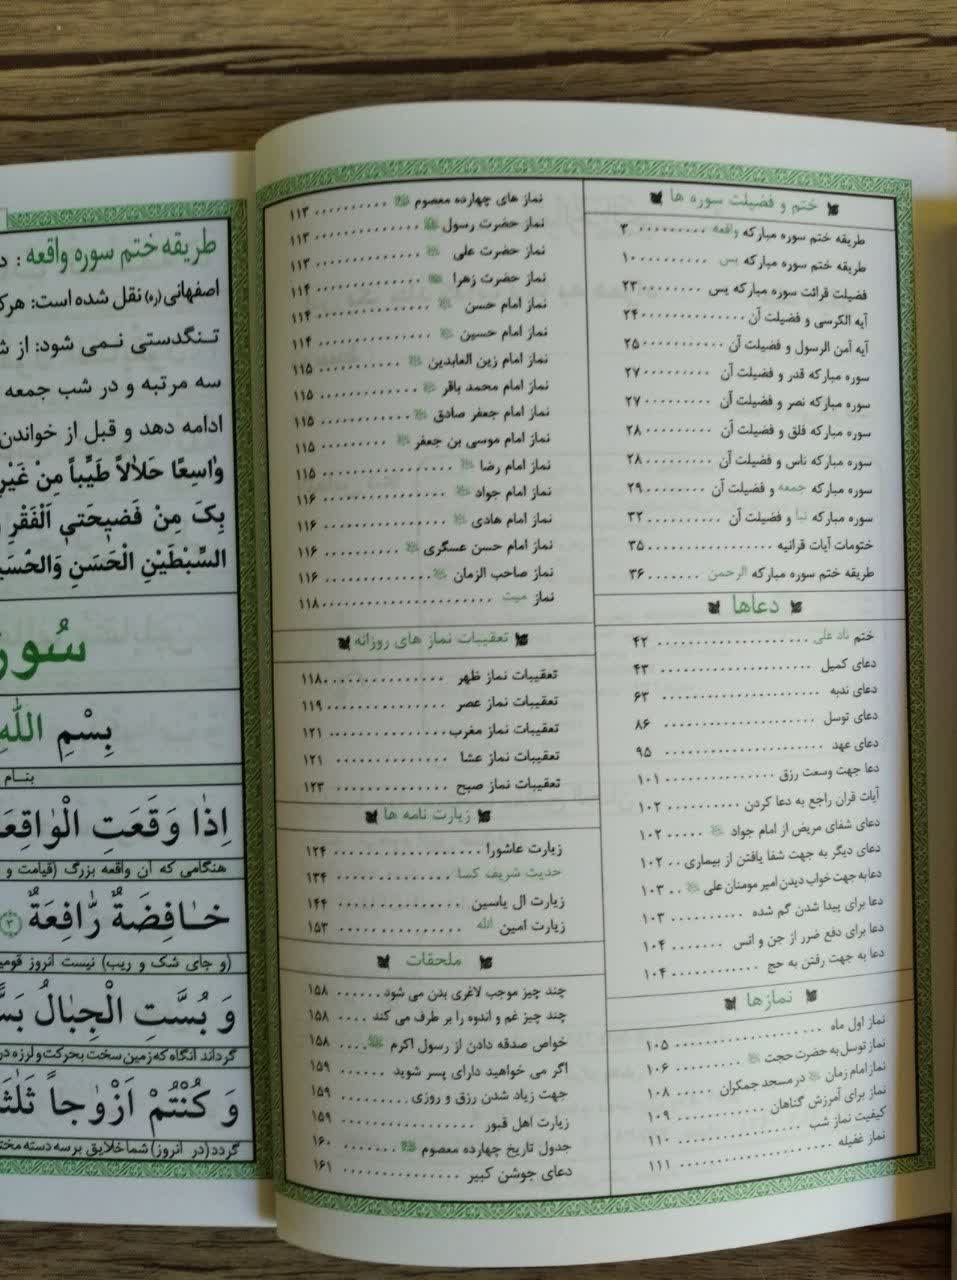 ختم و فضیلت سوره ها
طریقه ختم سوره مبارکه واقعه ۳
طریقه ختم سوره مبارکه یس ۱۰
فضیلت قرائت سوره مبارکه یس ۲۳
آیه الکرسی و فضیلت آن ۲۴
آیه آمن الرسول و فضیلت آن ۲۵
سوره مبارکه قدر و فضیلت آن ۲۷
سوره مبارکه نصر و فضیلت آن ۲۷
سوره مبارکه فلق و فضیلت آن ۲۸
سوره مبارکه ناس و فضیلت آن ۲۸
سوره مبارکه جمعه و فضیلت آن ۲۹
سوره مبارکه نبا و فضیلت آن ۳۲
ختومات آیات قرانیه ۳۵
طریقه ختم سوره مبارکه الرحمن ۳۶
دعاها
ختم ناد علی ۴۲
دعای کمیل ۴۳
دعای ندبه ۶۳
دعای توسل ۸۶
دعای عهد ۹۵
دعا جهت وسعت رزق ۱۰۱
آیات قران راجع به دعا کردن ۱۰۲
دعای شفای مریض از امام جواد ۱۰۲
دعای دیگر به جهت شفا یافتن از بیماری ۱۰۲
دعا به جهت خواب دیدن امیر مومنان علی ۱۰۳
دعا برای پیدا شدن گم شده ۱۰۳
دعا برای دفع ضرر از جن و انس ۱۰۴
دعا به جهت رفتن به حج ۱۰۴
نمازها
نماز اول ماه ۱۰۵
نماز توسل به حضرت حجت ۱۰۶
نماز امام زمان در مسجد جمکران ۱۰۸
نماز برای آمرزش گناهان ۱۰۹
کیفیت نماز شب ۱۱۰
نماز غفیله ۱۱۱
نماز های چهارده معصوم ۱۱۳
نماز حضرت رسول ۱۱۳
نماز حضرت علی ۱۱۳
نماز حضرت زهرا ۱۱۴
نماز امام حسن ۱۱۴
نماز امام حسین ۱۱۴
نماز امام زین العابدین ۱۱۵
نماز امام محمد باقر ۱۱۵
نماز امام جعفر صادق ۱۱۵
نماز امام موسی بن جعفر ۱۱۵
نماز امام رضا ۱۱۵
نماز امام جواد ۱۱۶
نماز امام هادی ۱۱۶
نماز امام حسن عسگری ۱۱۶
نماز صاحب الزمان ۱۱۶
نماز میت ۱۱۸
تعقیبات نماز های روزانه
تعقیبات نماز ظهر ۱۱۸
تعقیبات نماز عصر ۱۱۹
تعقیبات نماز مغرب ۱۲۱
تعقیبات نماز عشا ۱۲۱
تعقیبات نماز صبح ۱۲۳
زیارت نامه ها
زیارت عاشورا ۱۲۴
حدیث شریف کسا ۱۳۴
زیارت ال یاسین ۱۴۴
زیارت امین الله ۱۵۳
ملحقات
چند چیز موجب لاغری بدن می شود ۱۵۸
چند چیز غم و اندوه را بر طرف می کند ۱۵۸
خواص صدقه دادن از رسول اکرم ۱۵۸
اگر می خواهید دارای پسر شوید ۱۵۹
جهت زیاد شدن رزق و روزی ۱۵۹
زیارت اهل قبور ۱۵۹
جدول تاریخ چهارده معصوم ۱۶۰
دعای جوشن کبیر ۱۶۱
طریقه ختم سوره واقعه :
اصفهانی (ره) نقل شده است: هرک
تنگدستی نمی شود: از ش
سه مرتبه و در شب جمعه
ادامه دهد و قبل از خواندن
وٰاسِعًا حَلاٰلاً طَیِّباً مِنْ غَیْرِ
بِکَ مِنْ فَضیحَتیِ اَلْفَقْرِ
السِّبْطَیْنِ الْحَسَنِ وَالْحُسَیْ
سُورَ
بِسْمِ اللّٰهِ
بنام
اِذٰا وَقَعَتِ الْوٰاقِعَ
هنگامی که آن واقعه بزرگ (قیامت و
خٰافِضَةٌ رٰافِعَةٌ ۳
(و جای شک و ریب) نیست آنروز قومی
وَ بُسَّتِ الْجِبٰالُ بَسّ
گرداند آنگاه که زمین سخت بحرکت و لرزه در
وَ کُنْتُمْ اَزْوٰجاً ثَلٰثَ
گردد (در آنروز) شما خلایق بر سه دسته مخت